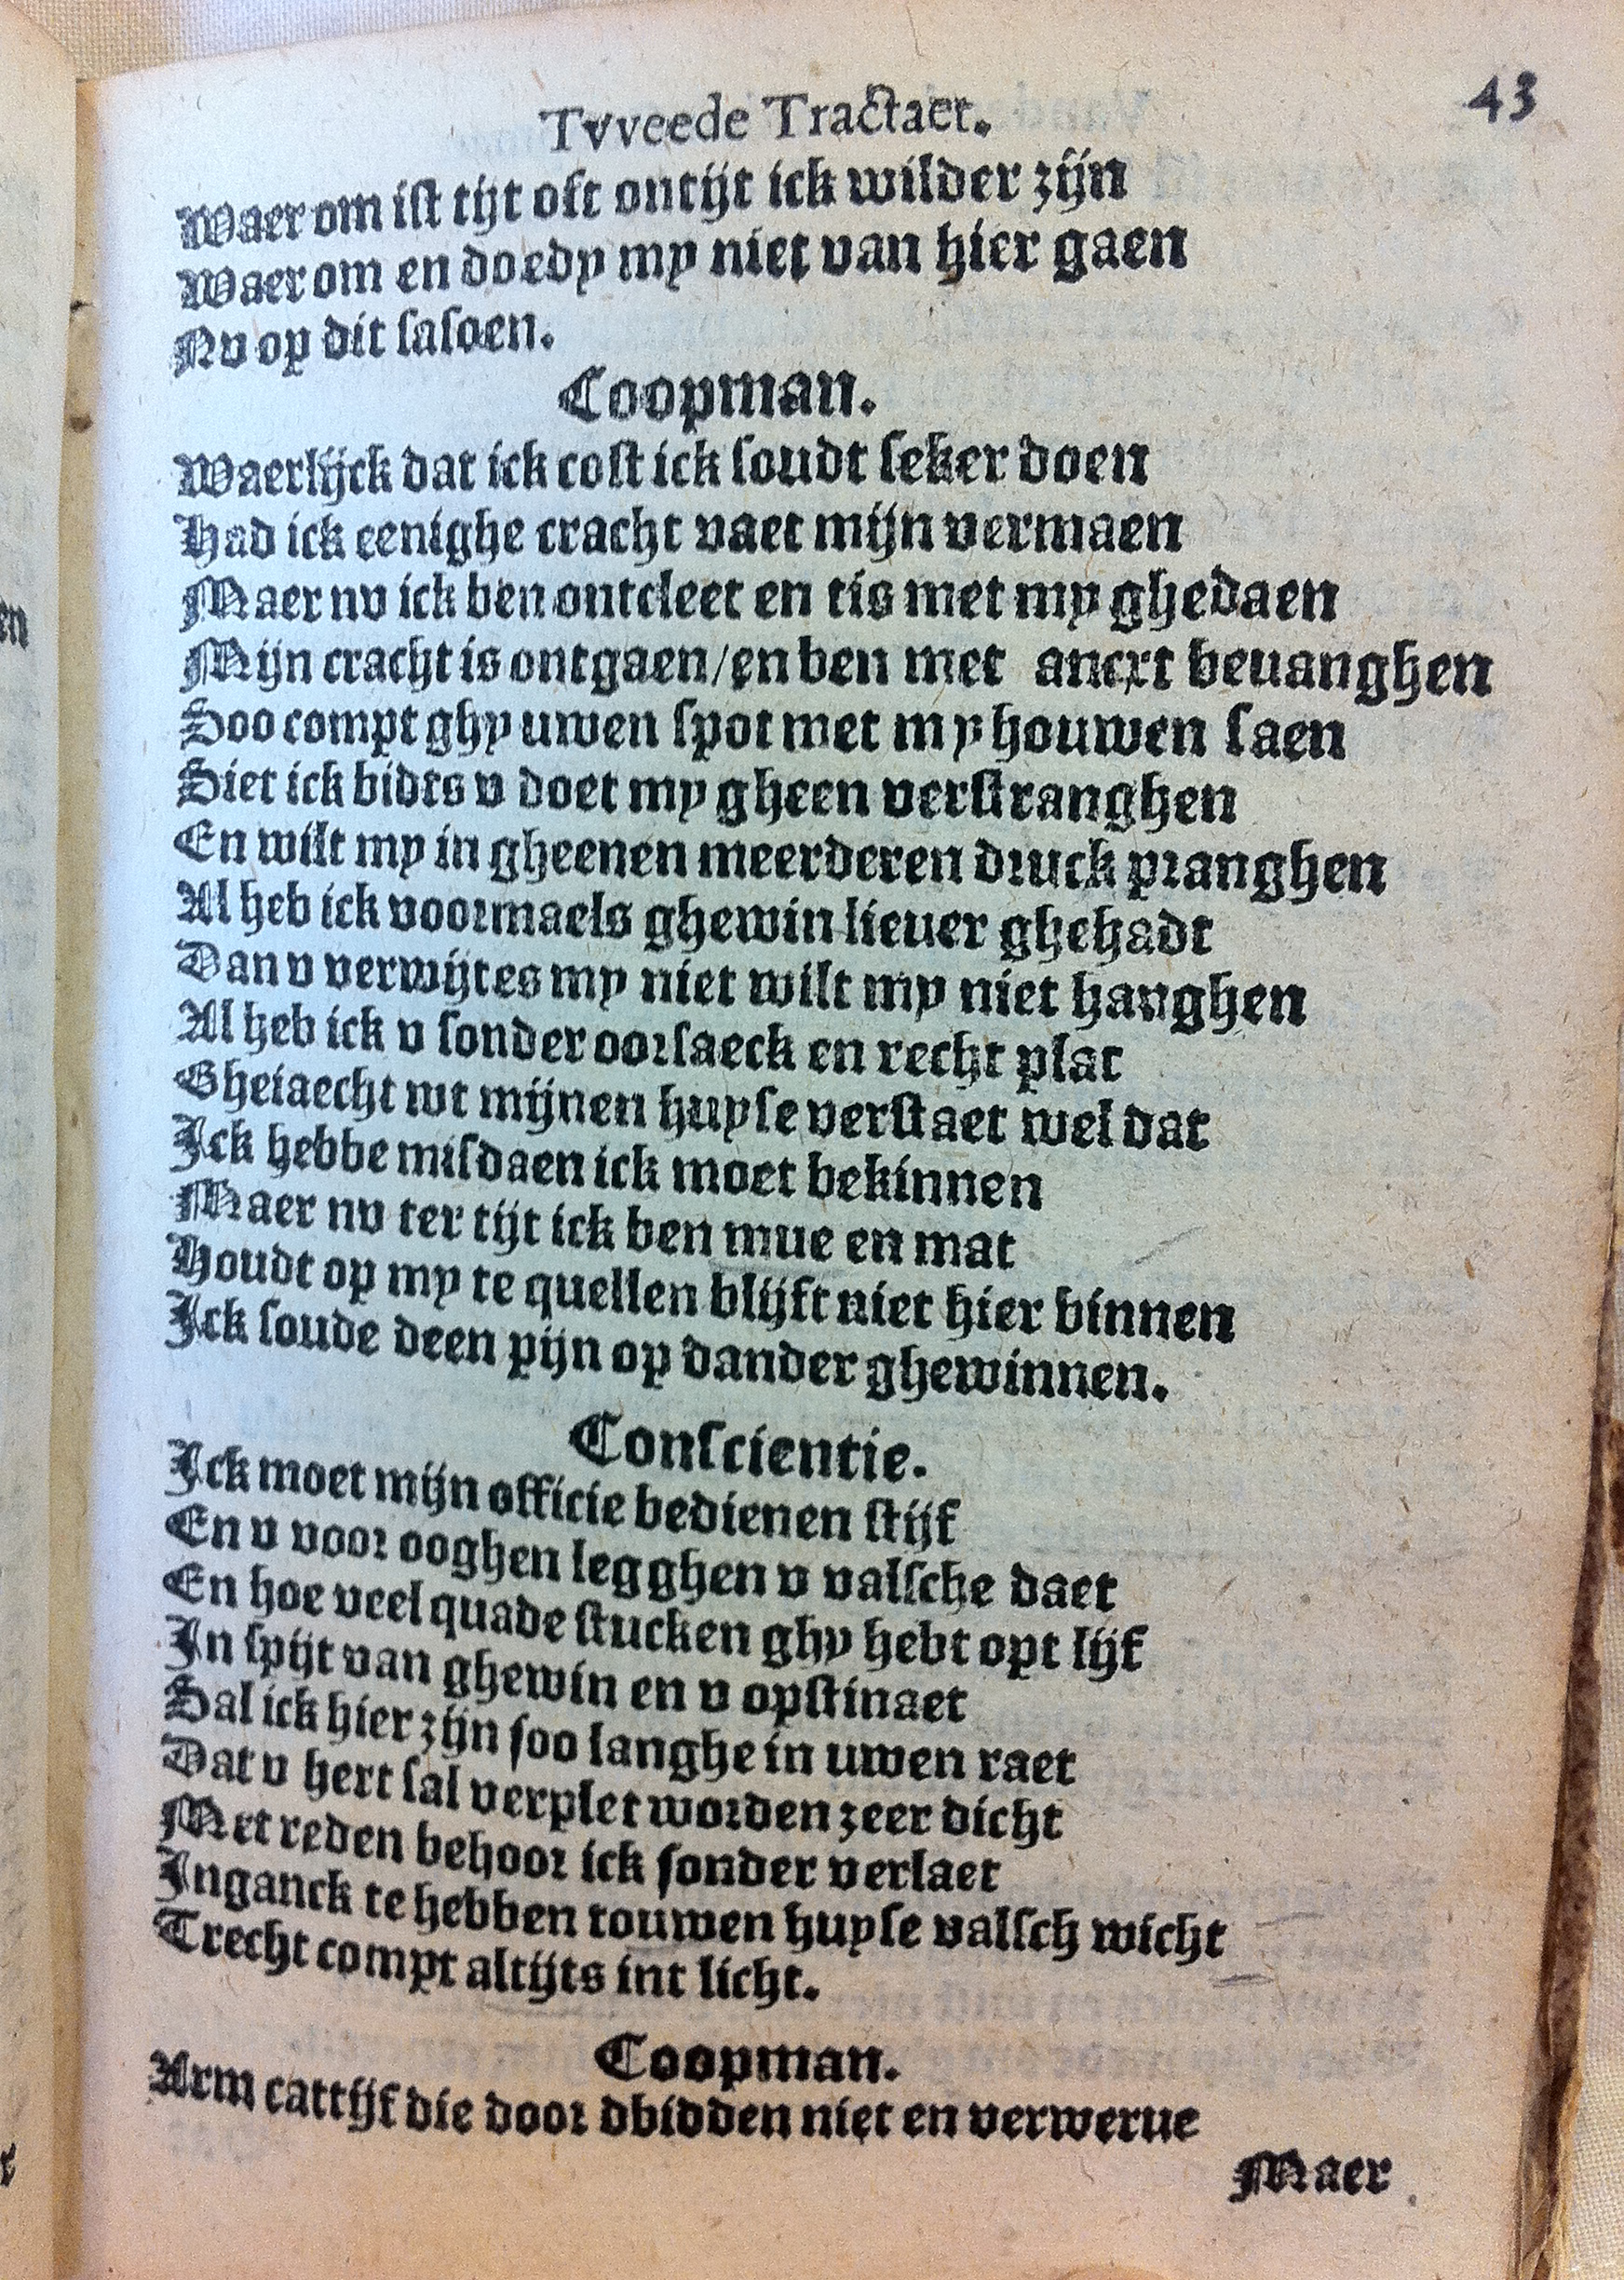 Tvveede Tractaet.
43
Waer om ist tijt oft ontijt ick wilder zijn
Waer om en doedy my niet van hier gaen
Nv op dit sasoen.
Coopman.
Waerlijck dat ick cost ick soudt seker doen
Had ick eenighe cracht vaet mijn vermaen
Maer nv ick ben ontcleet en tis met my ghedaen
Mijn cracht is ontgaen/en ben met ancxt beuanghen
Soo compt ghy uwen spot met my houwen saen
Siet ick bidts v doet my gheen verstranghen
En wilt my in gheenen meerderen druck pranghen
Al heb ick voormaels ghewin lieuer ghehadt
Dan v verwijtes my niet wilt my niet hanghen
Al heb ick v sonder oorsaeck en recht plat
Gheiaecht wt mijnen huyse verstaet wel dat
Ick hebbe misdaen ick moet bekinnen
Maer nv ter tijt ick ben mue en mat
Houdt op my te quellen blijft niet hier binnen
Ick soude deen pijn op dander ghewinnen.
Conscientie.
Ick moet mijn officie bedienen stijf
En v voor ooghen legghen v valsche daet
En hoe veel quade stucken ghy hebt opt lijf
In spijt van ghewin en v opstinaet
Sal ick hier zijn soo langhe in uwen raet
Dat v hert sal verplet worden zeer dicht
Met reden behoor ick sonder verlaet
Inganck te hebben touwen huyse valsch wicht
Trecht compt altijts int licht.
Coopman.
Arm cattijf die door dbidden niet en verwerue
Maer